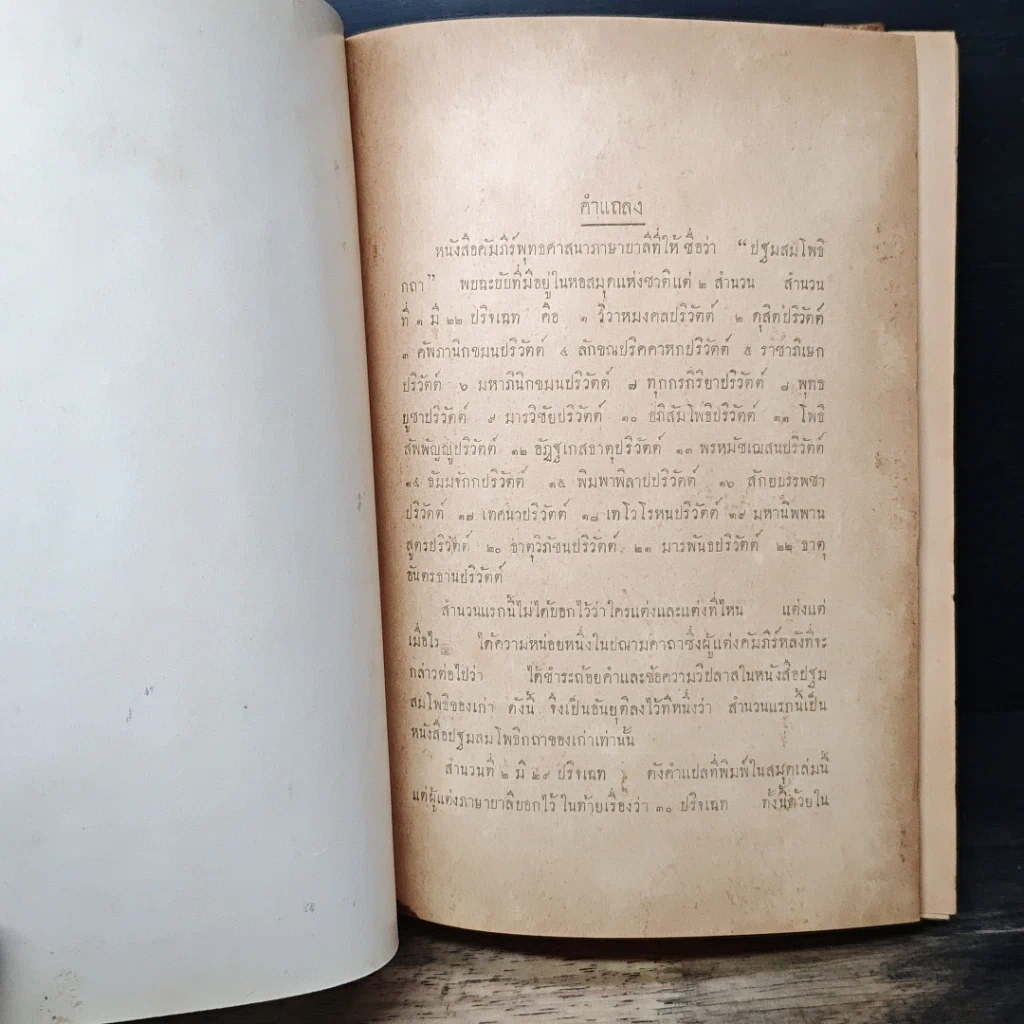 คำแถลง
หนังสือคัมภีร์พุทธศาสนาภาษาบาลีที่ให้ ชื่อว่า “ปฐมสมโพธิ
กถา” พบฉะบับที่มีอยู่ในหอสมุดแห่งชาติแต่ ๒ สำนวน สำนวน
ที่ ๑ มี ๒๒ ปริจเฉท คือ ๑ วิวาหมงคลปริวัตต์ ๒ ดุสิตปริวัตต์
๓ คัพภานิกขมนปริวัตต์ ๔ ลักขณปริคคาหกปริวัตต์ ๕ ราชาภิเษก
ปริวัตต์ ๖ มหาภินิกขมนปริวัตต์ ๗ ทุกกรกิริยาปริวัตต์ ๘ พุทธ
บูชาปริวัตต์ ๙ มารวิชัยปริวัตต์ ๑๐ อภิสัมโพธิปริวัตต์ ๑๑ โพธิ
สัพพัญญูปริวัตต์ ๑๒ อัฏฐเกสธาตุปริวัตต์ ๑๓ พรหมัชเฌสนปริวัตต์
๑๔ ธัมมจักกปริวัตต์ ๑๕ พิมพาพิลาปปริวัตต์ ๑๖ สักยบรรพชา
ปริวัตต์ ๑๗ เทศนาปริวัตต์ ๑๘ เทโวโรหนปริวัตต์ ๑๙ มหานิพพาน
สูตรปริวัตต์ ๒๐ ธาตุวิภัชนปริวัตต์ ๒๑ มารพันธปริวัตต์ ๒๒ ธาตุ
อันตรธานปริวัตต์
สำนวนแรกนี้ไม่ได้บอกไว้ว่าใครแต่งและแต่งที่ไหน แต่งแต่
เมื่อไร ได้ความหน่อยหนึ่งในปณามคาถาซึ่งผู้แต่งคัมภีร์หลังที่จะ
กล่าวต่อไปว่า ได้ชำระถ้อยคำและข้อความวิปลาสในหนังสือปฐม
สมโพธิของเก่า ดังนี้ จึงเป็นอันยุติลงไว้ทีหนึ่งว่า สำนวนแรกนี้เป็น
หนังสือปฐมสมโพธิกถาของเก่าเท่านั้น
สำนวนที่ ๒ มี ๒๙ ปริจเฉท ดังคำแปลที่พิมพ์ในสมุดเล่มนี้
แต่ผู้แต่งภาษาบาลีบอกไว้ ในท้ายเรื่องว่า ๓๐ ปริจเฉท ทั้งนี้ด้วยใน